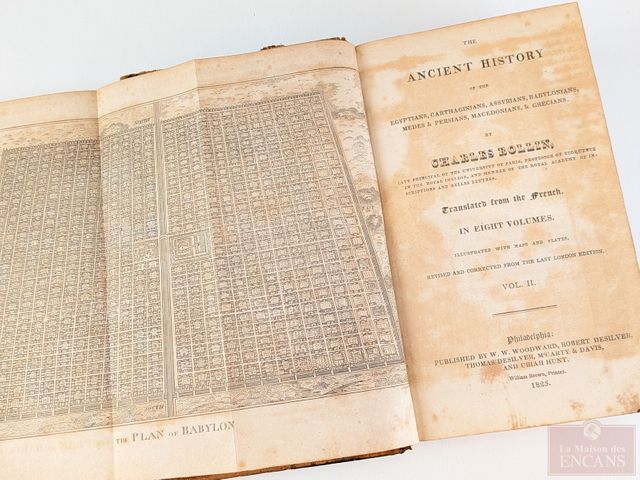 THE PLAN OF BABYLON
SOUTH
THE
ANCIENT HISTORY
OF THE
EGYPTIANS, CARTHAGINIANS, ASSYRIANS, BABYLONIANS,
MEDES & PERSIANS, MACEDONIANS, & GRECIANS.
BY
CHARLES ROLLIN,
LATE PRINCIPAL OF THE UNIVERSITY OF PARIS, PROFESSOR OF ELOQUENCE
IN THE ROYAL COLLEGE, AND MEMBER OF THE ROYAL ACADEMY OF IN-
SCRIPTIONS AND BELLES LETTRES.
Translated from the French.
IN EIGHT VOLUMES.
ILLUSTRATED WITH MAPS AND PLATES.
REVISED AND CORRECTED FROM THE LAST LONDON EDITION.
VOL. II.
Philadelphia:
PUBLISHED BY W. W. WOODWARD, ROBERT DESILVER,
THOMAS DESILVER, McCARTY & DAVIS,
AND URIAH HUNT.
William Brown, Printer.
1825.
La Maison des
ENCANS